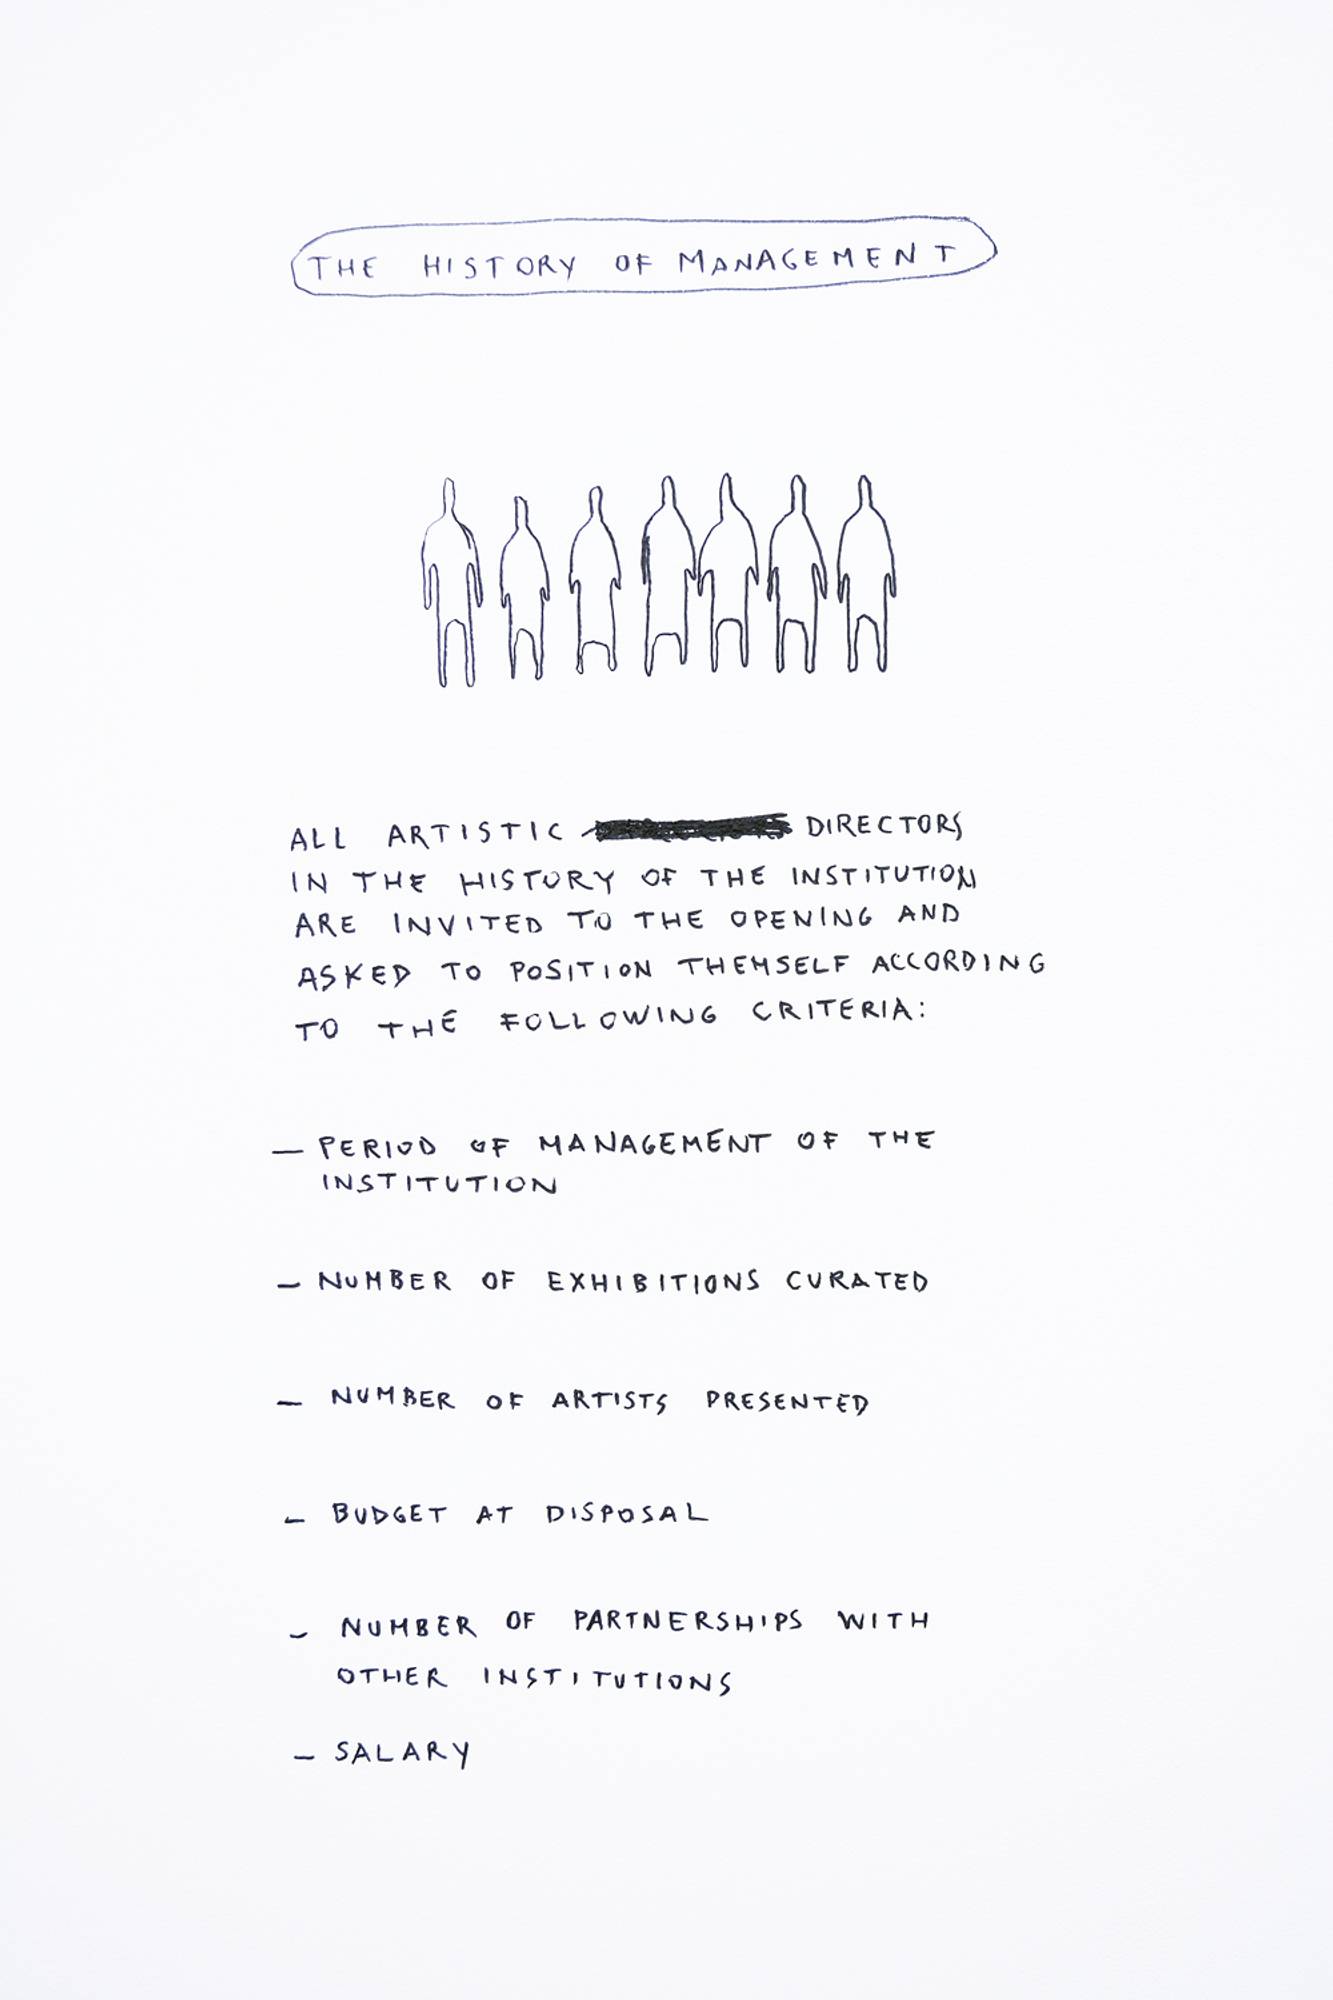 THE HISTORY OF MANAGEMENT
ALL ARTISTIC DIRECTORS
IN THE HISTORY OF THE INSTITUTION
ARE INVITED TO THE OPENING AND
ASKED TO POSITION THEMSELF ACCORDING
TO THE FOLLOWING CRITERIA:
— PERIOD OF MANAGEMENT OF THE
INSTITUTION
— NUMBER OF EXHIBITIONS CURATED
— NUMBER OF ARTISTS PRESENTED
— BUDGET AT DISPOSAL
— NUMBER OF PARTNERSHIPS WITH
OTHER INSTITUTIONS
— SALARY